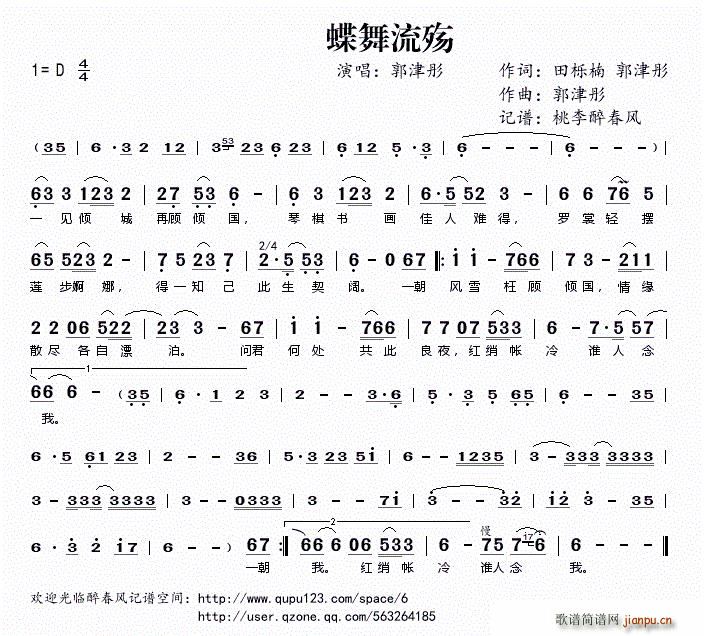 蝶舞流殇
1=D 4/4
演唱：郭津彤
作词：田栎楠 郭津彤
作曲：郭津彤
记谱：桃李醉春风
(35 | 6·32 12 | 3 53 23 623 | 612 5·3 | 6 - - - | 6 - - - ) |
63 3 123 2 | 27 53 6 - | 6 3 123 2 | 6·5 52 3 - | 6 6 76 5 |
一 见倾 城 再顾 倾 国， 琴 棋 书 画 佳 人 难 得， 罗 裳 轻 摆
65 523 2 - | 7 5 23 7 | 2/4 2·5 53 | 6 - 0 67 |: i i - 766 | 7 3 - 211 |
莲 步婀 娜， 得 一 知 己 此 生 契 阔。 一朝 风 雪 枉 顾 倾 国，情 缘
2 2 06 522 | 23 3 - 67 | i i - 766 | 7 7 07 533 | 6 - 7·5 57 |
散 尽 各 自 漂 泊。 问君 何 处 共 此 良 夜，红 绡 帐 冷 谁 人 念
1
66 6 - (35 | 6· 1 2 3 | 2 - - 3·6 | 5· 3 5 65 | 6 - - 35 |
我。
6·5 61 23 | 2 - - 36 | 5·3 23 5i | 6 - - 1235 | 3 - 333 3333 |
3 - 333 3333 | 3 - - 0333 | 3 - - 7i | 3 - - 32 | i2 3 - 35 |
6· 3 2 i7 | 6 - - ) 67 :| 66 6 06 533 | 6 - 75 7 i7 6 | 6 - - - ‖
2
慢
一朝 我。 红 绡 帐 冷 谁人 念 我。
欢迎光临醉春风记谱空间：http://www.qupu123.com/space/6
http://user.qzone.qq.com/563264185
歌谱简谱网 jianpu.cn